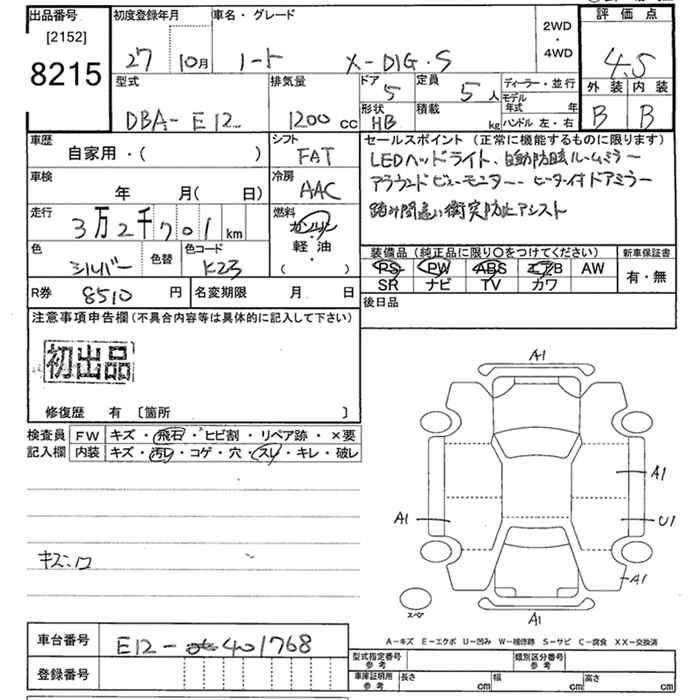 出品番号 [2152] 8215
初度登録年月 27 10月
車名・グレード ノート X-DIG・S
2WD・4WD
評価点 4.5
外装 B 内装 B
型式 DBA- E12
排気量 1200 cc
ドア 5 定員 5人
形状 HB 積載 kg
ディーラー・並行
モデル年式 年
ハンドル 左・右
車歴 自家用・( )
シフト FAT
セールスポイント (正常に機能するものに限ります)
LEDヘッドライト、自動防眩ルームミラー
アラウンドビューモニター、ヒーター付ドアミラー
踏み間違い衝突防止アシスト
車検 年 月( 日)
冷房 AAC
走行 3万2千701 km
燃料 ガソリン・軽油・( )
色 シルバー 色替 色コード K23
装備品 (純正品に限り○をつけてください) 新車保証書
PS PW ABS エアB AW 有・無
SR ナビ TV カワ
R券 8510 円 名変期限 月 日
後日品
注意事項申告欄 (不具合内容等は具体的に記入して下さい)
初出品
修復歴 有 〔箇所 〕
検査員記入欄
FW キズ・飛石・ヒビ割・リペア跡・×要
内装 キズ・汚レ・コゲ・穴・スレ・キレ・破レ
A1
A1
A1
U1
A1
A1
キズ:ロ
スペ
A-キズ E-エクボ U-凹み W-補修跡 S-サビ C-腐食 XX-交換済
車台番号 E12-401768
登録番号
型式指定番号 参考 類別区分番号 参考
車庫証明用 参考 長さ cm 幅 cm 高さ cm